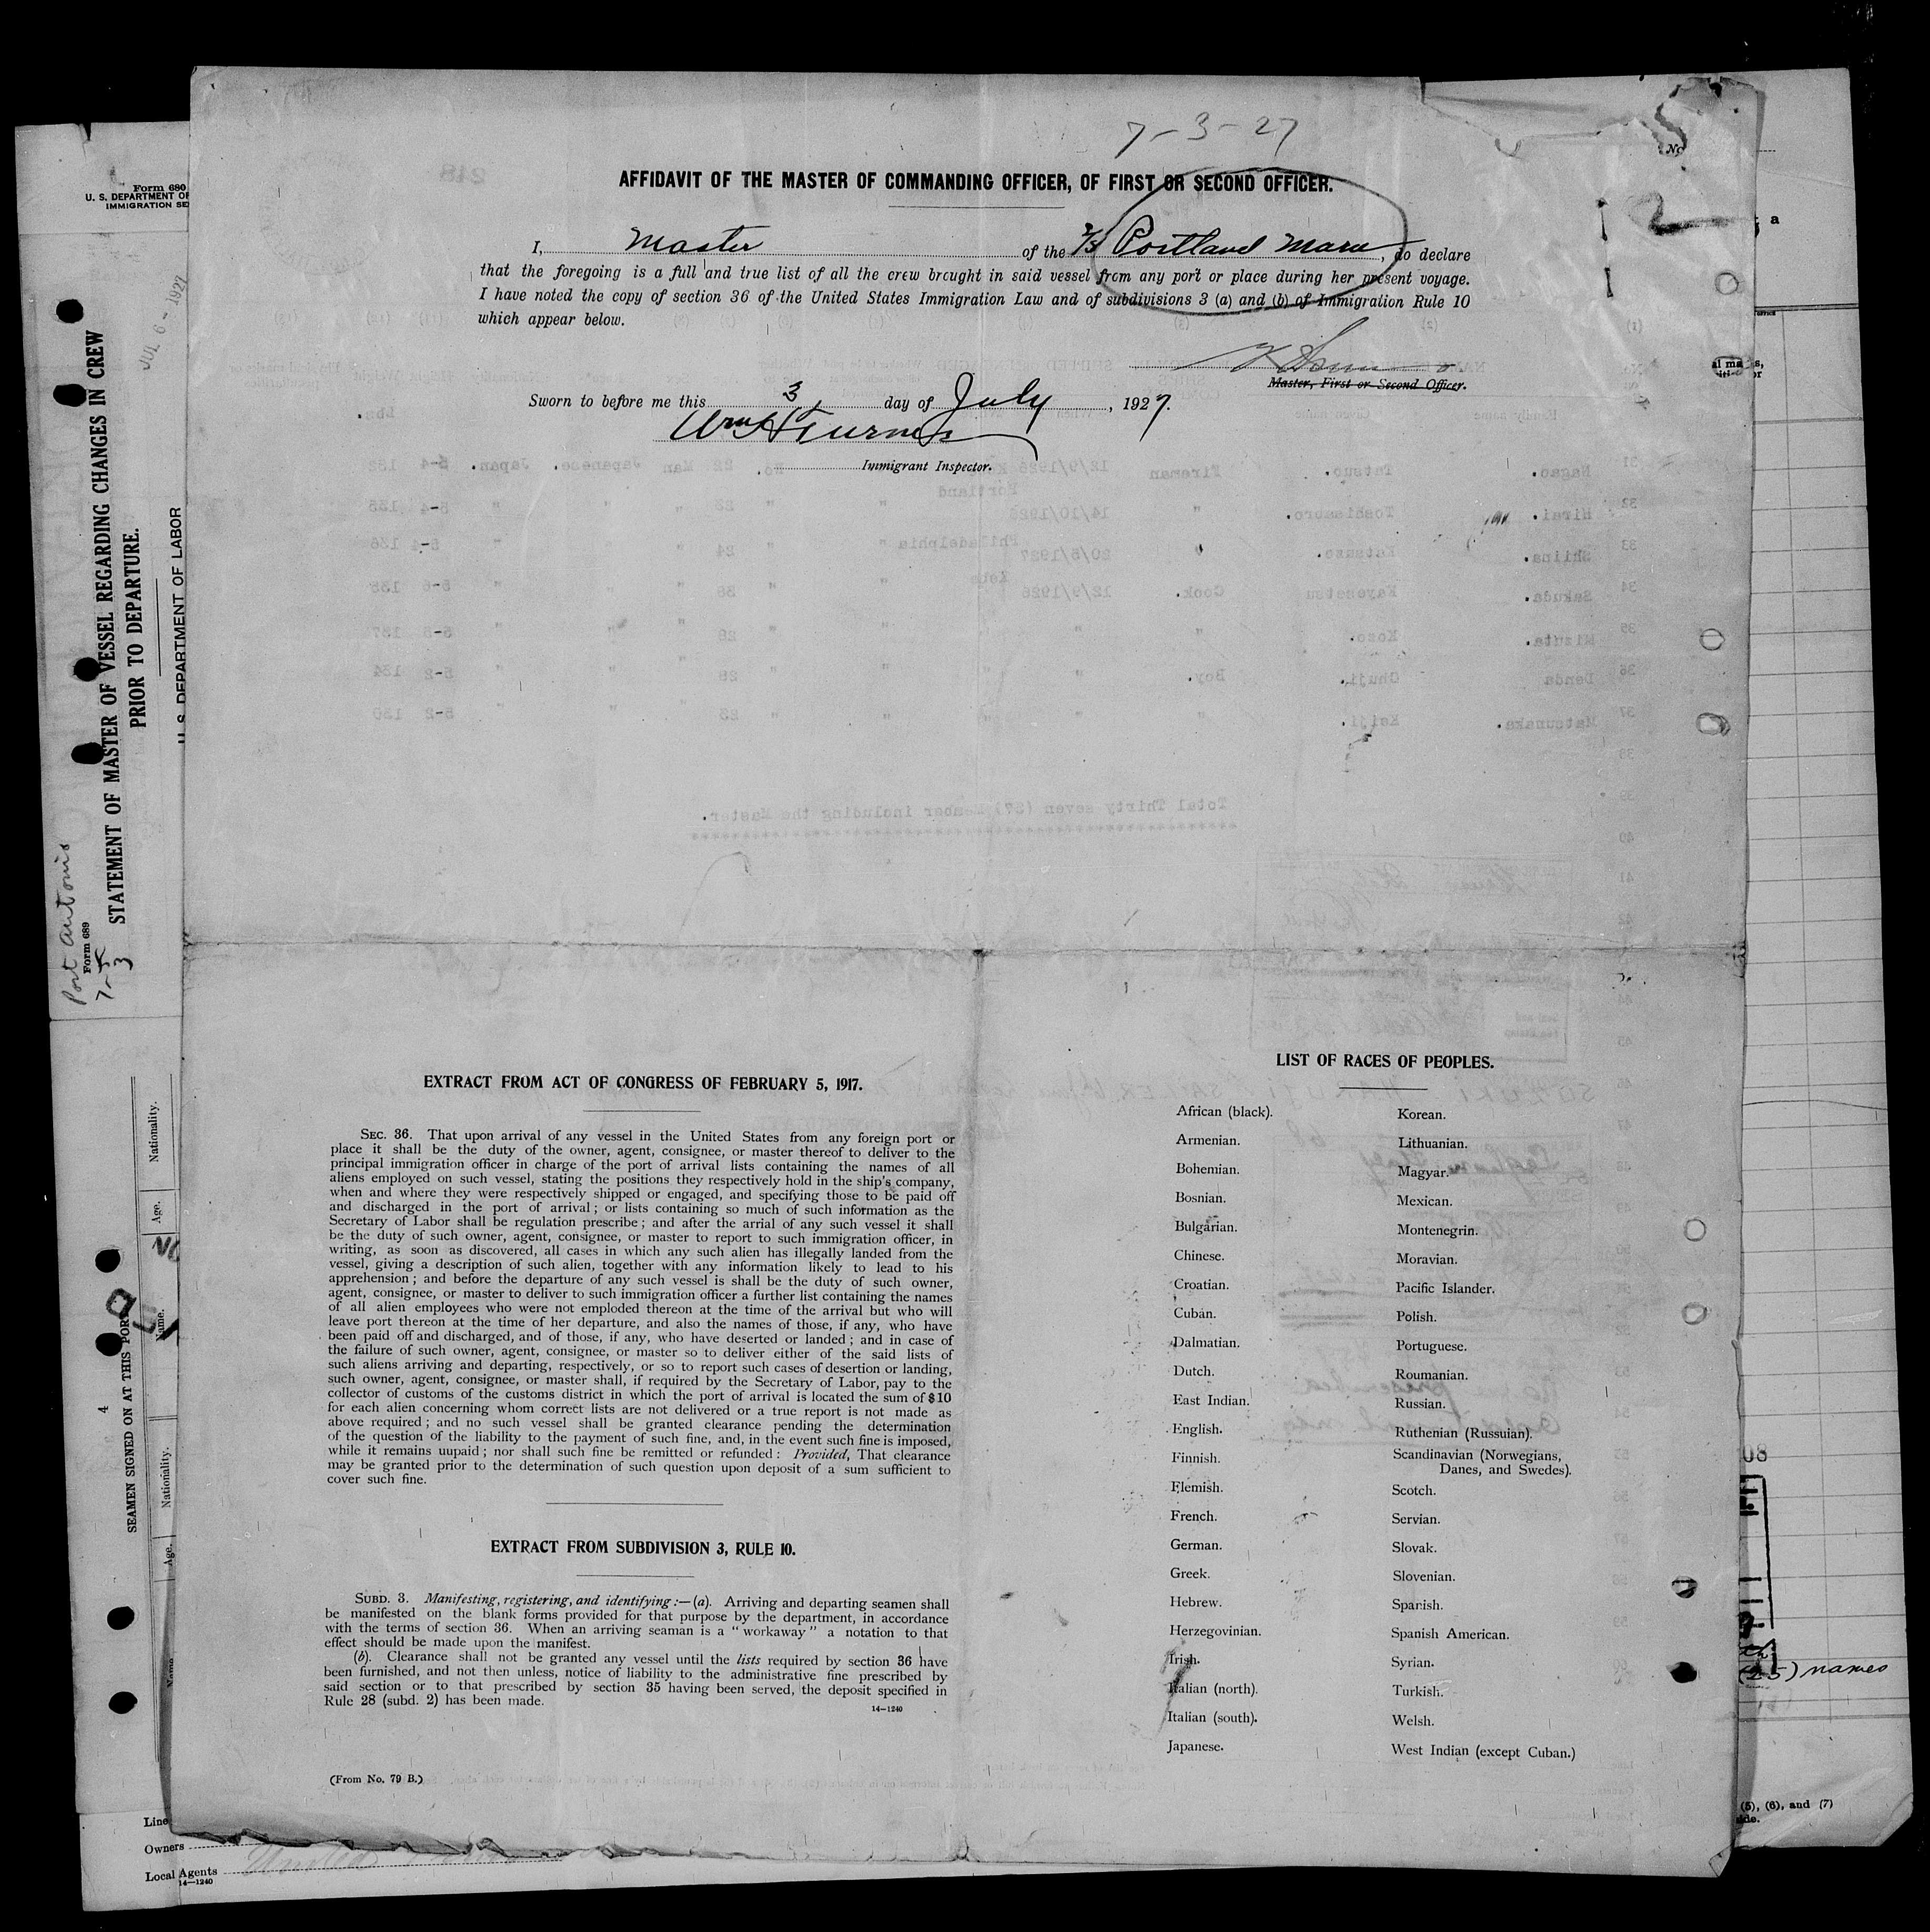 7-3-27
AFFIDAVIT OF THE MASTER OF COMMANDING OFFICER, OF FIRST OR SECOND OFFICER.
I, Master of the S/S Portland Maru, do declare
that the foregoing is a full and true list of all the crew brought in said vessel from any port or place during her present voyage.
I have noted the copy of section 36 of the United States Immigration Law and of subdivisions 3 (a) and (b) of Immigration Rule 10
which appear below.
Master, First or Second Officer.
Sworn to before me this 3 day of July, 1927.
Immigrant Inspector.
EXTRACT FROM ACT OF CONGRESS OF FEBRUARY 5, 1917.
SEC. 36. That upon arrival of any vessel in the United States from any foreign port or
place it shall be the duty of the owner, agent, consignee, or master thereof to deliver to the
principal immigration officer in charge of the port of arrival lists containing the names of all
aliens employed on such vessel, stating the positions they respectively hold in the ship's company,
when and where they were respectively shipped or engaged, and specifying those to be paid off
and discharged in the port of arrival; or lists containing so much of such information as the
Secretary of Labor shall be regulation prescribe; and after the arrial of any such vessel it shall
be the duty of such owner, agent, consignee, or master to report to such immigration officer, in
writing, as soon as discovered, all cases in which any such alien has illegally landed from the
vessel, giving a description of such alien, together with any information likely to lead to his
apprehension; and before the departure of any such vessel is shall be the duty of such owner,
agent, consignee, or master to deliver to such immigration officer a further list containing the names
of all alien employees who were not emploded thereon at the time of the arrival but who will
leave port thereon at the time of her departure, and also the names of those, if any, who have
been paid off and discharged, and of those, if any, who have deserted or landed; and in case of
the failure of such owner, agent, consignee, or master so to deliver either of the said lists of
such aliens arriving and departing, respectively, or so to report such cases of desertion or landing,
such owner, agent, consignee, or master shall, if required by the Secretary of Labor, pay to the
collector of customs of the customs district in which the port of arrival is located the sum of $10
for each alien concerning whom correct lists are not delivered or a true report is not made as
above required; and no such vessel shall be granted clearance pending the determination
of the question of the liability to the payment of such fine, and, in the event such fine is imposed,
while it remains uupaid; nor shall such fine be remitted or refunded: Provided, That clearance
may be granted prior to the determination of such question upon deposit of a sum sufficient to
cover such fine.
EXTRACT FROM SUBDIVISION 3, RULE 10.
SUBD. 3. Manifesting, registering, and identifying:—(a). Arriving and departing seamen shall
be manifested on the blank forms provided for that purpose by the department, in accordance
with the terms of section 36. When an arriving seaman is a "workaway" a notation to that
effect should be made upon the manifest.
(b). Clearance shall not be granted any vessel until the lists required by section 36 have
been furnished, and not then unless, notice of liability to the administrative fine prescribed by
said section or to that prescribed by section 35 having been served, the deposit specified in
Rule 28 (subd. 2) has been made.
14—1240
(From No. 79 B.)
LIST OF RACES OF PEOPLES.
African (black).
Armenian.
Bohemian.
Bosnian.
Bulgarian.
Chinese.
Croatian.
Cuban.
Dalmatian.
Dutch.
East Indian.
English.
Finnish.
Flemish.
French.
German.
Greek.
Hebrew.
Herzegovinian.
Irish.
Italian (north).
Italian (south).
Japanese.
Korean.
Lithuanian.
Magyar.
Mexican.
Montenegrin.
Moravian.
Pacific Islander.
Polish.
Portuguese.
Roumanian.
Russian.
Ruthenian (Russuian).
Scandinavian (Norwegians,
Danes, and Swedes).
Scotch.
Servian.
Slovak.
Slovenian.
Spanish.
Spanish American.
Syrian.
Turkish.
Welsh.
West Indian (except Cuban.)
Form 680
U. S. DEPARTMENT OF
IMMIGRATION SE
JUL 6 - 1927
Port Antonio
Form 689
7-5
3
STATEMENT OF MASTER OF VESSEL REGARDING CHANGES IN CREW
PRIOR TO DEPARTURE.
U. S. DEPARTMENT OF LABOR
4
SEAMEN SIGNED ON AT THIS PORT
Name.
Age.
Nationality.
Name
Age.
Nationality.
Line
Owners
Local Agents
14—1240
(25) names
(5), (6), and (7)